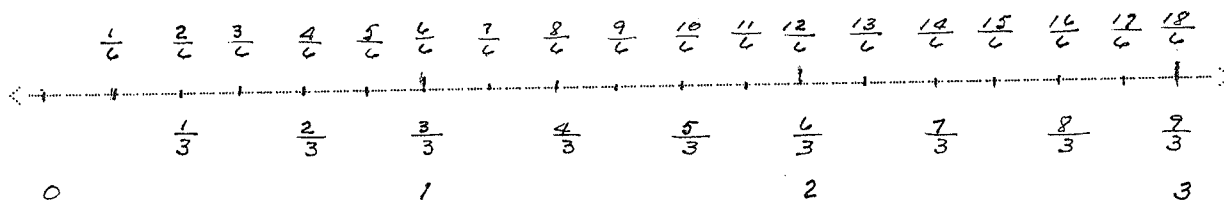 1/6 2/6 3/6 4/6 5/6 6/6 7/6 8/6 9/6 10/6 11/6 12/6 13/6 14/6 15/6 16/6 17/6 18/6
1/3 2/3 3/3 4/3 5/3 6/3 7/3 8/3 9/3
0 1 2 3